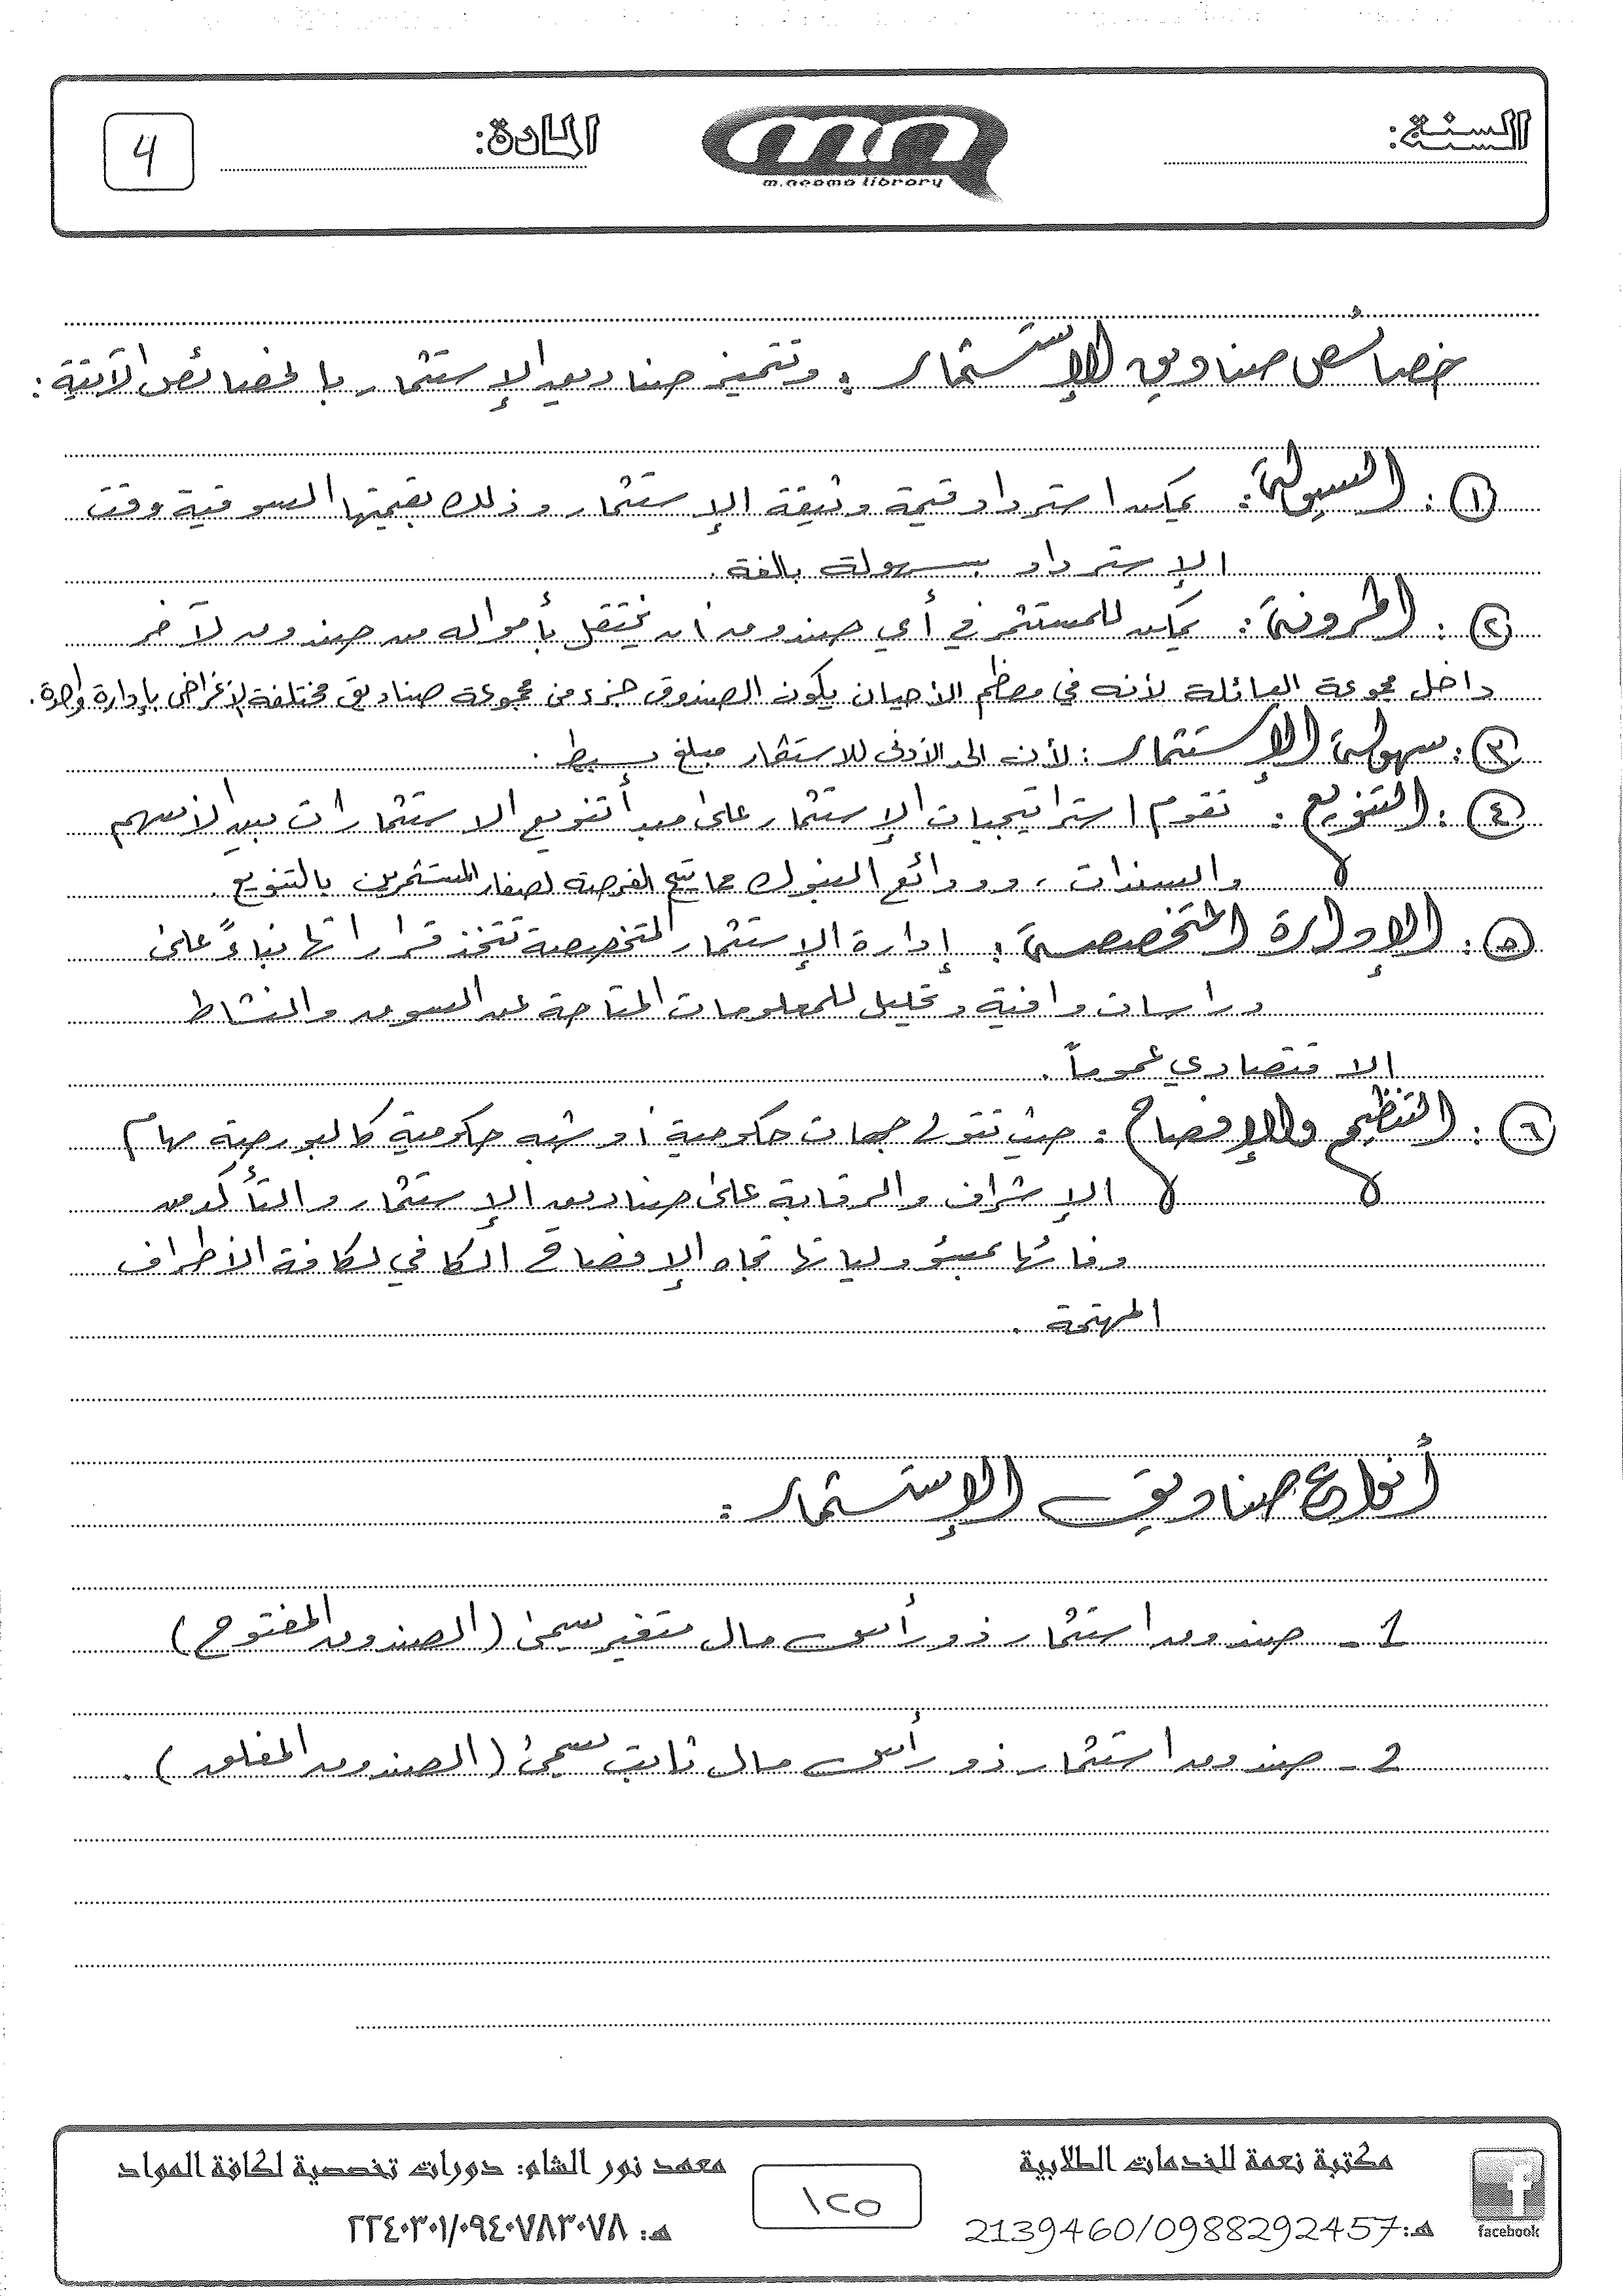 السنة:
m.neama library
المادة:
4
خصائص صناديق الإستثمار : وتتميز صناديق الإستثمار بالخصائص الآتية :
① : السيولة : يمكن استرداد قيمة وثيقة الإستثمار وذلك بقيمتها السوقية وقت
الإسترداد بسهولة بالغة .
② : المرونة : يمكن للمستثمر في أي صندوق أن ينتقل بأمواله من صندوق لآخر
داخل مجموعة العائلة لأنه في معظم الأحيان يكون الصندوق جزء من مجموعة صناديق مختلفة الأغراض بإدارة واحدة .
③ : سهولة الإستثمار : لأن الحد الأدنى للاستثمار مبلغ بسيط .
④ : التنويع : تقوم استراتيجيات الإستثمار على مبدأ تنويع الاستثمارات بين الأسهم
والسندات ، وودائع البنوك مما يتيح الفرصة لصغار المستثمرين بالتنويع .
⑤ : الإدارة المتخصصة : إدارة الإستثمار المتخصصة تتخذ قراراتها بناءً على
دراسات وافية وتحليل للمعلومات المتاحة عن السوق والنشاط
الاقتصادي عموماً .
⑥ : التنظيم والإفصاح : حيث تتولى جهات حكومية أو شبه حكومية كالبورصة مهام
الإشراف والرقابة على صناديق الإستثمار والتأكد من
وفائها بمسؤولياتها تجاه الإفصاح الكافي لكافة الأطراف
المهتمة .
أنواع صناديق الإستثمار :
1 - صندوق استثمار ذو رأس مال متغير يسمى ( الصندوق المفتوح )
2 - صندوق استثمار ذو رأس مال ثابت يسمى ( الصندوق المغلق ) .
مكتبة نعمة للخدمات الطلابية
هـ: 2139460/0988292457
facebook
١٢٥
معهد نور الشام: دورات تخصصية لكافة المواد
هـ: ٢٢٤٠٣٠١/٠٩٤٠٧٨٣٠٧٨